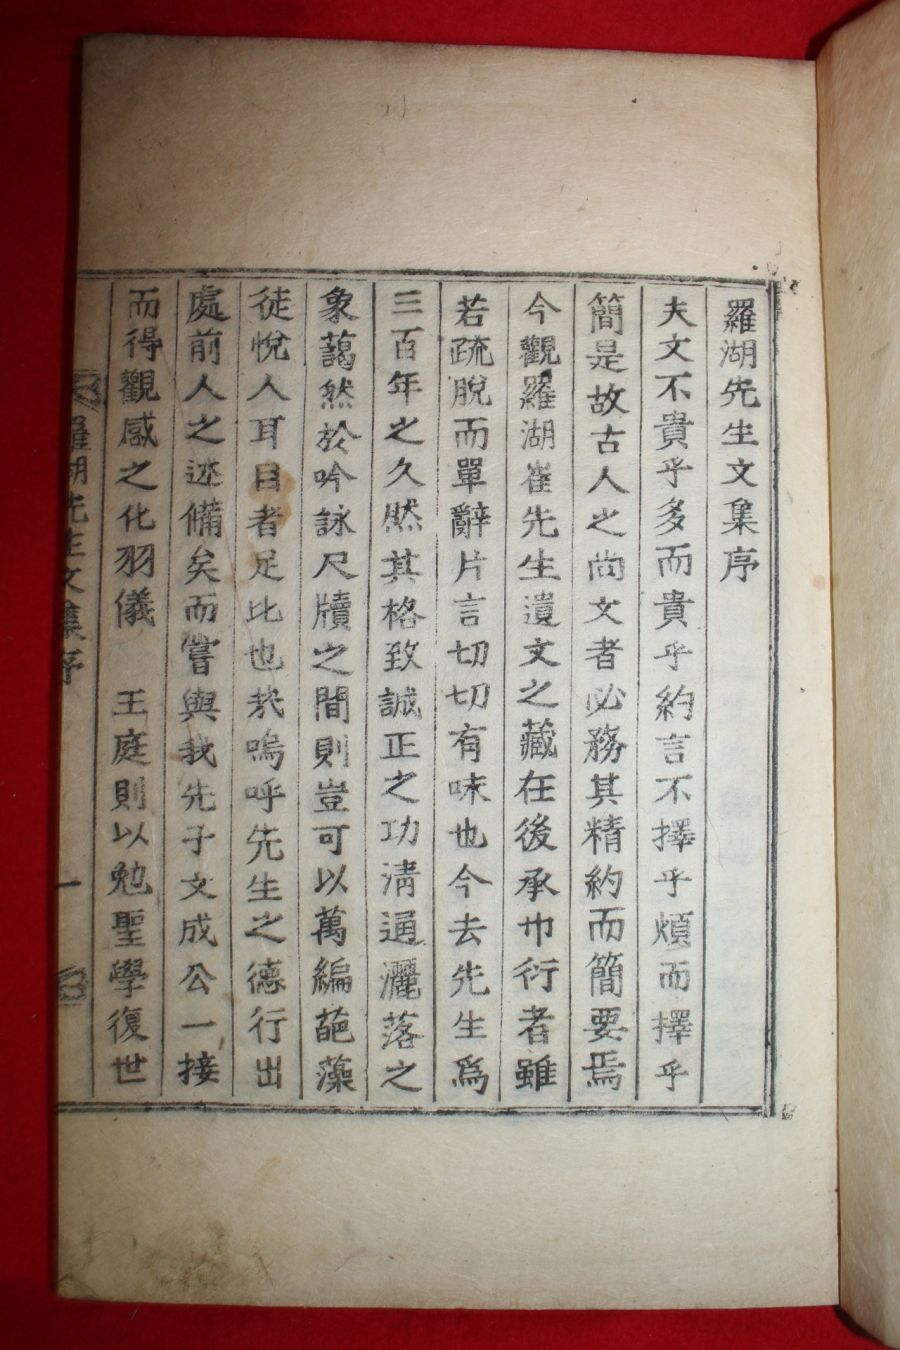 羅湖先生文集序
夫文不貴乎多而貴乎約言不擇乎煩而擇乎
簡是故古人之尙文者必務其精約而簡要焉
今觀羅湖崔先生遺文之藏在後承巾衍者雖
若疏脫而單辭片言切切有味也今去先生爲
三百年之久然其格致誠正之功淸通灑落之
象藹然於吟詠尺牘之間則豈可以萬編葩藻
徒悅人耳目者足比也哉嗚呼先生之德行出
處前人之述備矣而嘗與我先子文成公一接
而得觀感之化羽儀　王庭則以勉聖學復世
羅湖先生文集序　一